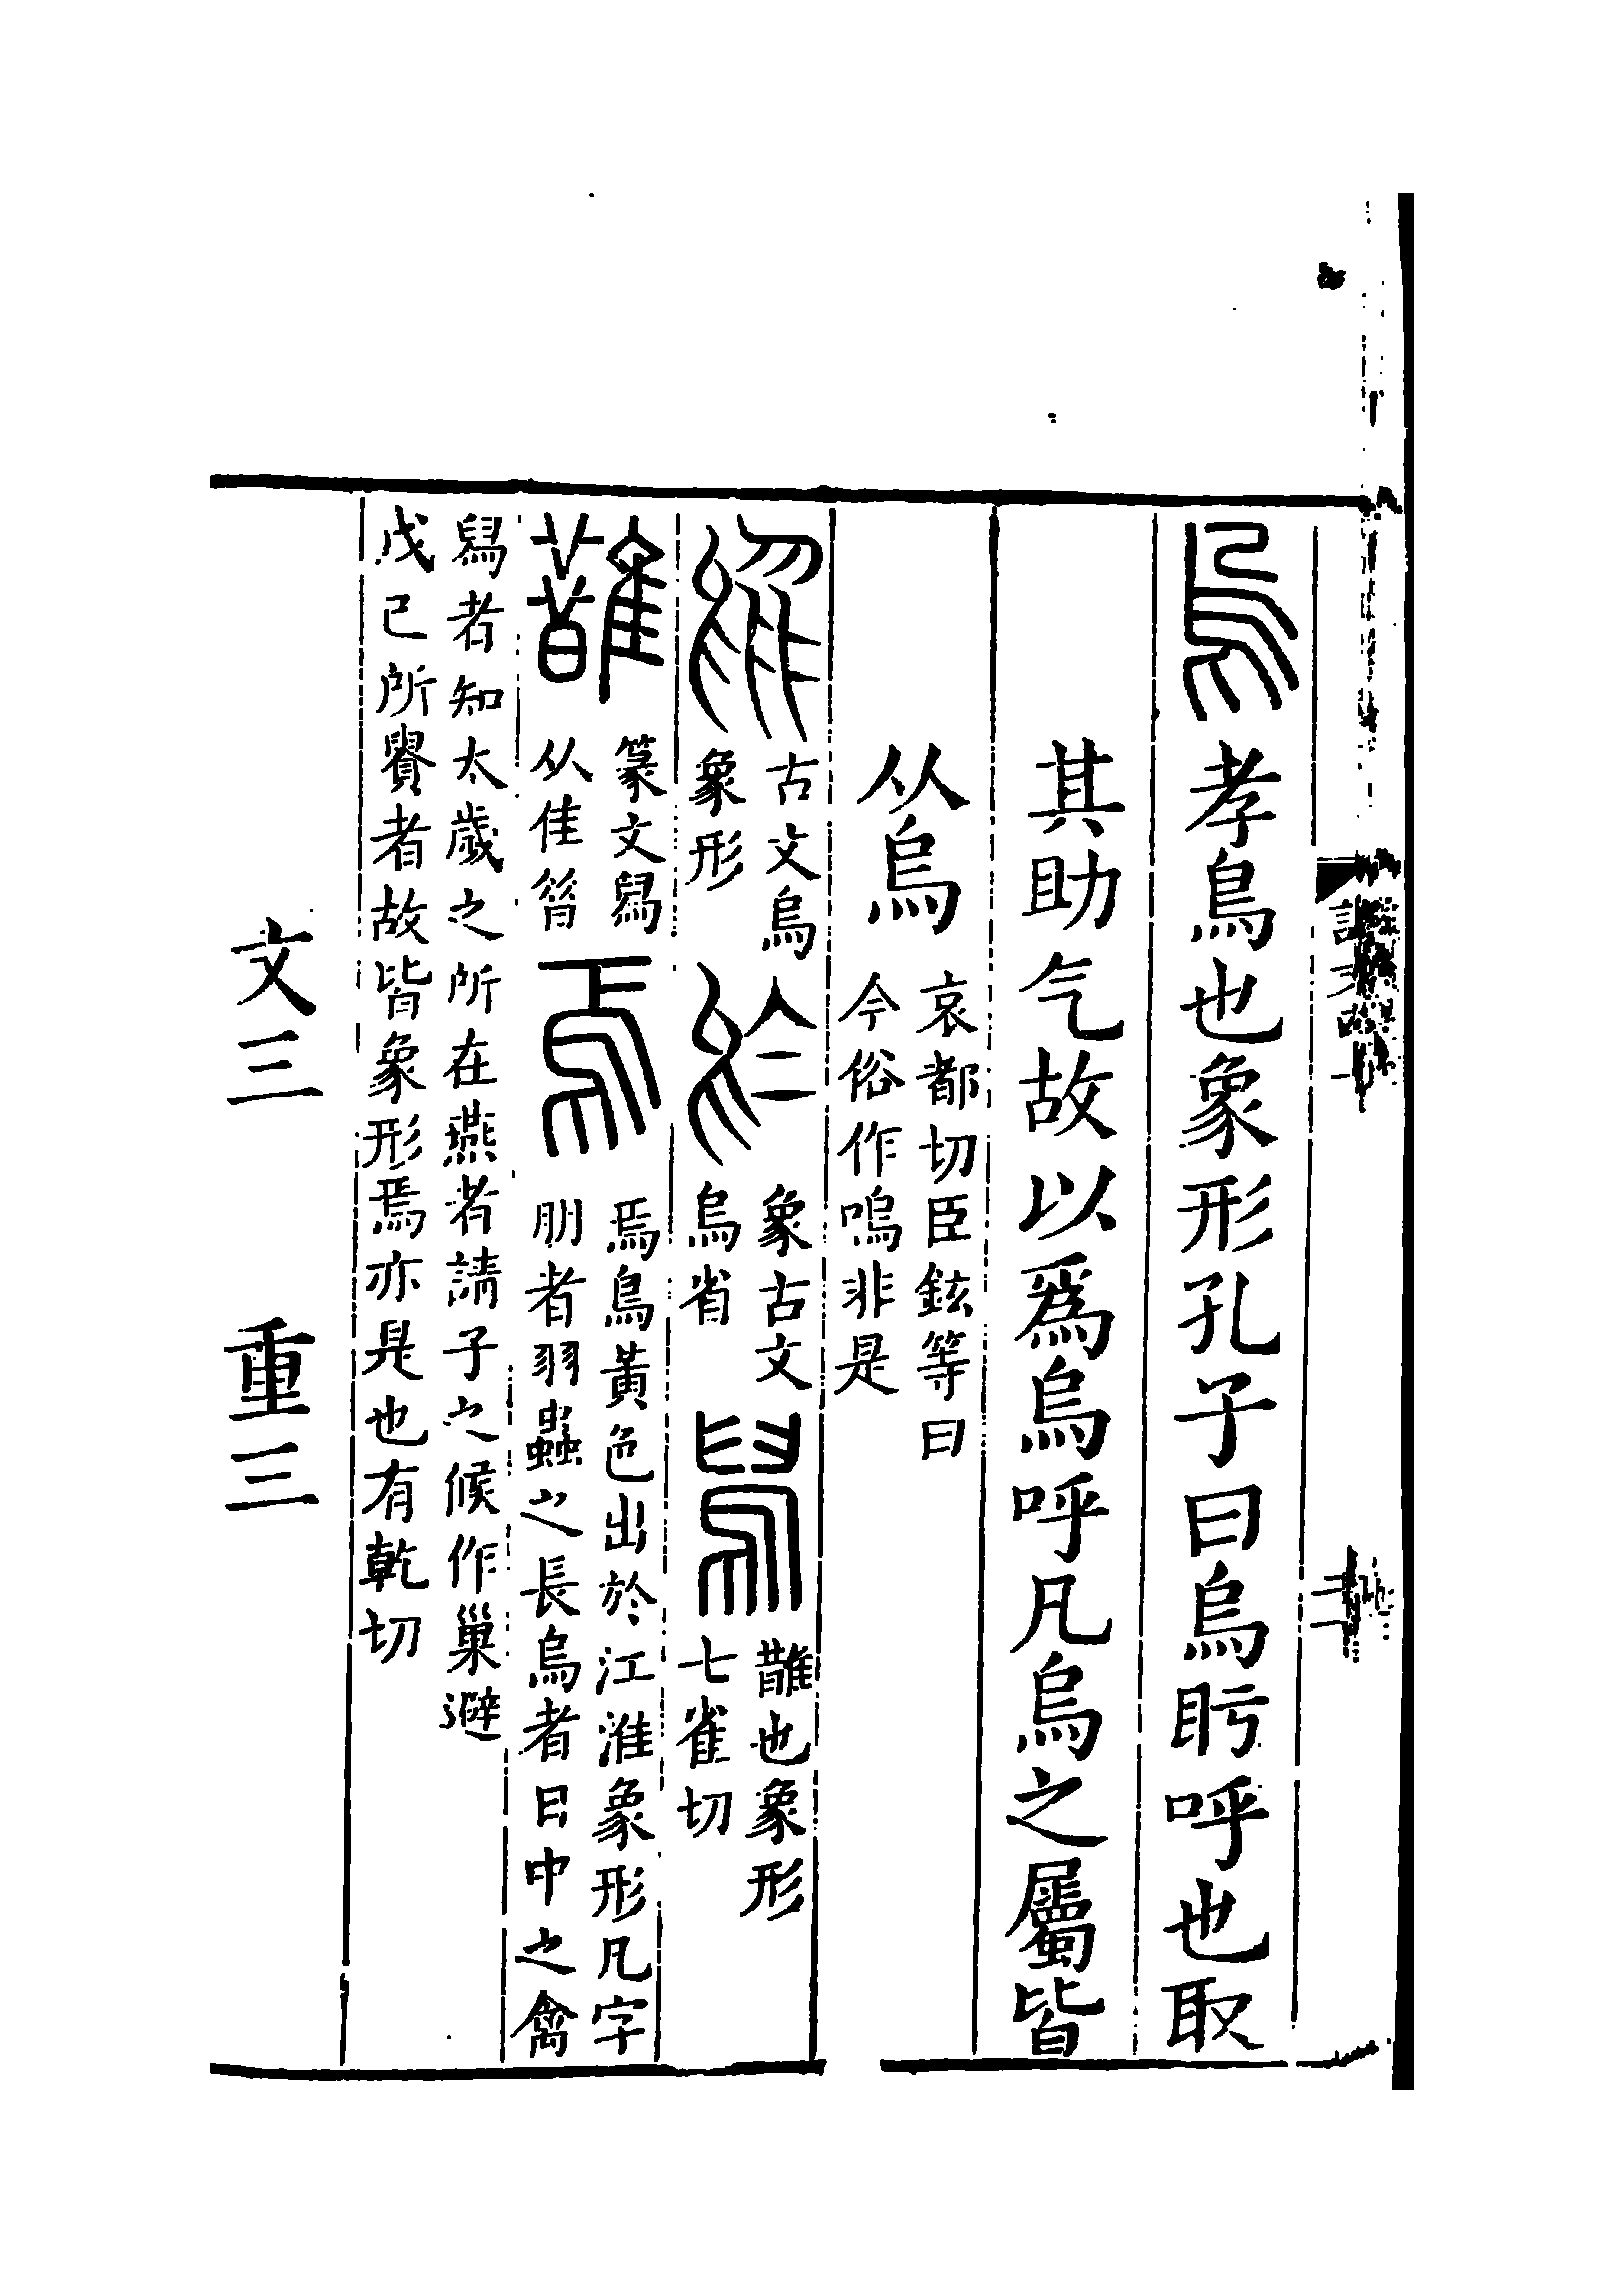 烏 孝鳥也象形孔子曰烏盱呼也取
其助气故以爲烏呼凡烏之屬皆
从烏 哀都切臣鉉等曰
今俗作嗚非是
古文烏
象形
於 象古文
烏省
舄 䧿也象形
七雀切
䧿 篆文舄
从隹㫺
焉 焉鳥黃色出於江淮象形凡字
朋者羽蟲之長烏者日中之禽
舄者知太歲之所在燕者請子之候作巢避
戊己所貴者故皆象形焉亦是也有乾切
文三 重三